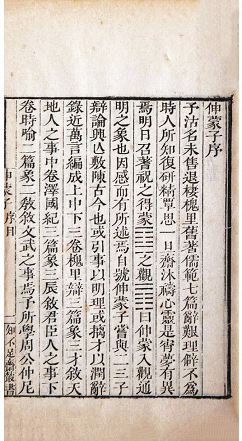 伸蒙子序
予沽名未售退棲槐里舊著儒範七篇辭艱理僻不為
時人所知復研精覃思一日齋沐禱心靈是宵夢有異
焉明日召蓍祝之得蒙䷃之觀䷓曰伸蒙入觀通
明之象也因感而有所述焉自號伸蒙子嘗與二三子
辯論興亡敷陳古今也或引事以明理或摘才以潤辭
錄近萬言編成上中下三卷槐里辯三篇象三才敘天
地人之事中卷澤國紀三篇象三辰敘君臣人之事下
卷時喻二篇象二教敘文武之事焉予所學周公仲尼
伸蒙子 序目
一
知不足齋叢書